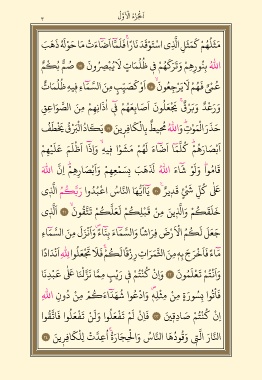 الجزء الأول
٣
مَثَلُهُمْ كَمَثَلِ الَّذِى اسْتَوْقَدَ نَارًاۚ فَلَمَّٓا اَضَٓاءَتْ مَا حَوْلَهُ ذَهَبَ
اللّٰهُ بِنُورِهِمْ وَتَرَكَهُمْ فِى ظُلُمَاتٍ لَا يُبْصِرُونَ ۝ صُمٌّ بُكْمٌ
عُمْىٌ فَهُمْ لَا يَرْجِعُونَۙ ۝ اَوْ كَصَيِّبٍ مِنَ السَّمَٓاءِ فِيهِ ظُلُمَاتٌ
وَرَعْدٌ وَبَرْقٌۚ يَجْعَلُونَ اَصَابِعَهُمْ فِٓى اٰذَانِهِمْ مِنَ الصَّوَاعِقِ
حَذَرَ الْمَوْتِۜ وَاللّٰهُ مُحِيطٌ بِالْكَافِرِينَ ۝ يَكَادُ الْبَرْقُ يَخْطَفُ
اَبْصَارَهُمْۜ كُلَّمَٓا اَضَٓاءَ لَهُمْ مَشَوْا فِيهِۙ وَاِذَٓا اَظْلَمَ عَلَيْهِمْ
قَامُواۜ وَلَوْ شَٓاءَ اللّٰهُ لَذَهَبَ بِسَمْعِهِمْ وَاَبْصَارِهِمْۜ اِنَّ اللّٰهَ
عَلٰى كُلِّ شَىْءٍ قَدِيرٌ۟ ۝ يَٓا اَيُّهَا النَّاسُ اعْبُدُوا رَبَّكُمُ الَّذِى
خَلَقَكُمْ وَالَّذِينَ مِنْ قَبْلِكُمْ لَعَلَّكُمْ تَتَّقُونَۙ ۝ اَلَّذِى
جَعَلَ لَكُمُ الْاَرْضَ فِرَاشًا وَالسَّمَٓاءَ بِنَٓاءًۖ وَاَنْزَلَ مِنَ السَّمَٓاءِ
مَٓاءً فَاَخْرَجَ بِهِ مِنَ الثَّمَرَاتِ رِزْقًا لَكُمْۚ فَلَا تَجْعَلُوا لِلّٰهِ اَنْدَادًا
وَاَنْتُمْ تَعْلَمُونَ ۝ وَاِنْ كُنْتُمْ فِى رَيْبٍ مِمَّا نَزَّلْنَا عَلٰى عَبْدِنَا
فَأْتُوا بِسُورَةٍ مِنْ مِثْلِهِۖ وَادْعُوا شُهَدَٓاءَكُمْ مِنْ دُونِ اللّٰهِ
اِنْ كُنْتُمْ صَادِقِينَ ۝ فَاِنْ لَمْ تَفْعَلُوا وَلَنْ تَفْعَلُوا فَاتَّقُوا
النَّارَ الَّتِى وَقُودُهَا النَّاسُ وَالْحِجَارَةُۚ اُعِدَّتْ لِلْكَافِرِينَ ۝